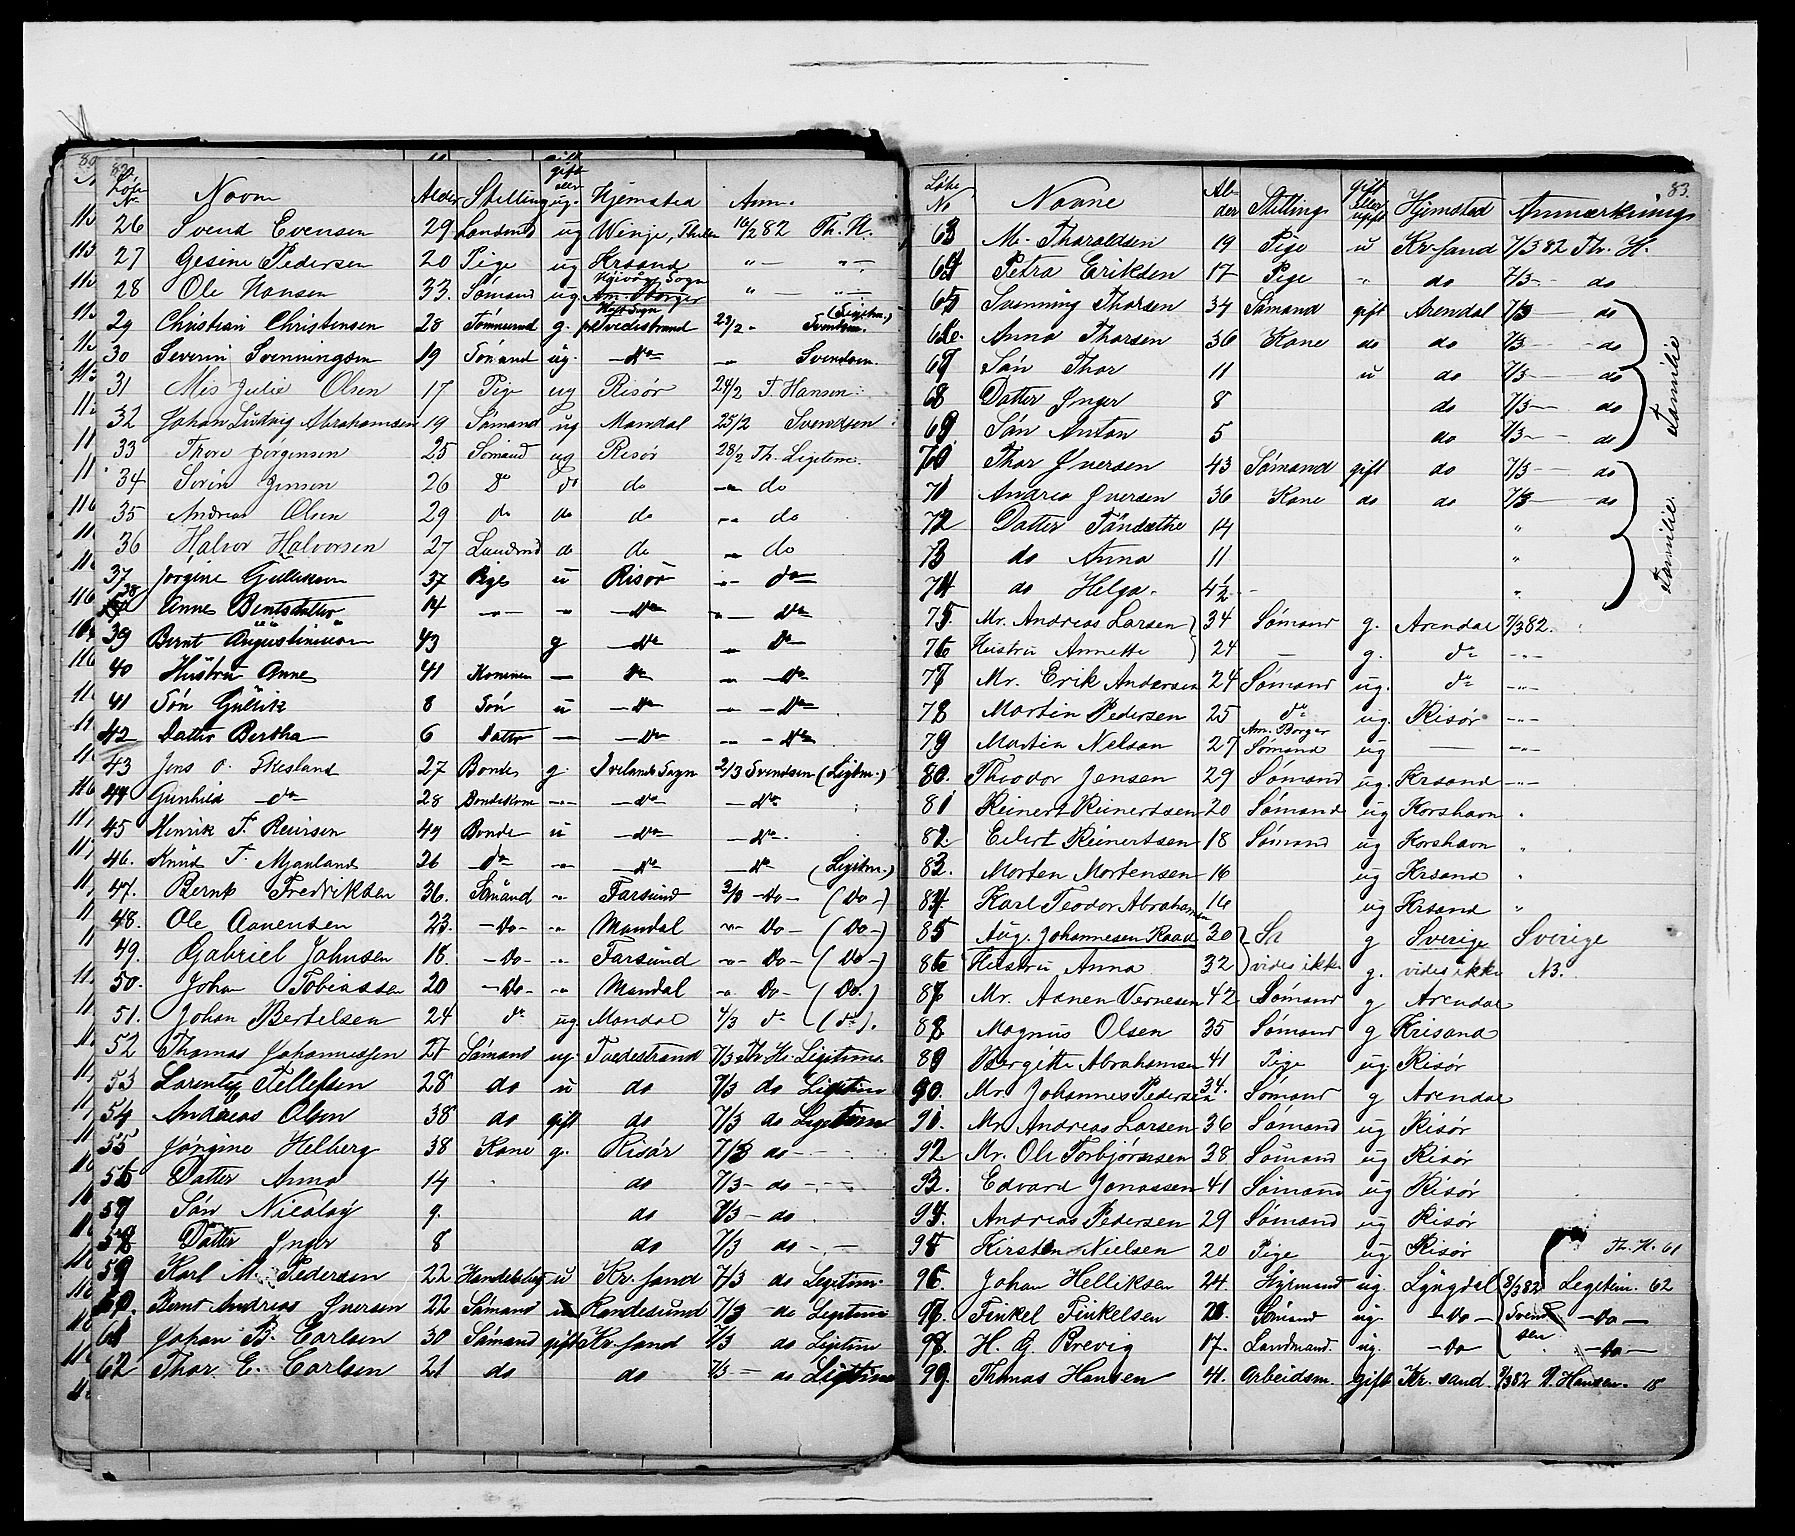 82
Løbe Nr. Navn Alder Stilling gift eller ug. Hjemsted Anm.
26 Svend Evensen 29 Landmd ug Winje, Thelem 16/2 82 Th. H.
27 Gesine Pedersen 20 Pige ug Krsand " — " —
28 Ole Hansen 33. Sømand ug Am. Borger " — " —
29 Christian Christensen 28 Tømmermd g. Tvedestrand 23/2 " Svendsen (Legitm.)
30 Severin Svenningsen 19 Sømand ug. — do — " Svendsen
31 Mis Julie Olsen 17 Pige ug Risør 24/2 T. Hansen
32 Johan Ludvig Abrahamsen 19 Sømand ug Mandal 25/2 Svendsen
33 Thore Jørgensen 25 Sømand ug Risør 28/2 Th. Legitm.
34 Sørin Jensen 26 do do do — do
35 Andreas Olsen 29 do do do — do
36 Halvor Halvorsen 27 Landmd do do — do
37 Jørgine Gulliksen 37 Pige u Risør — do
38 Anne Bentsdatter 14 — " — " — do — — do
39 Bernt Augustinuson 43 g — do — — do
40 Hustru Anne 41 Konen — — do — — do —
41 Søn Gullik 8 Søn u — do — — do —
42 Datter Bertha 6 Datter — — do — — do —
43 Jens O. Skesland 27 Bonde g. Ivelands Sogn 2/3 Svendsen (Legitm.)
44 Gunhild — do 28 Bondekone — " — — do — — do —
45 Henrik T. Reiersen 49 Bonde u — do — — do —
46. Knud T. Mjaaland 26 — do — " — do — — do (Legitm.)
47. Bernt Fredriksen 36. Sømand " Farsund 3/3 — do — (do —)
48. Ole Aanensen 23. — do — " Mandal " do — (do —)
49. Gabriel Johnsen 18. — do — " Farsund — do — (do —)
50. Johan Tobiassen 20 — do — " Mandal — do — (do.)
51. Johan Bertelsen 24 do ug. Mandal 4/3 do (do).
52 Thomas Johannessen 27 Sømand ug. Tvedestrand 7/3 Th. H. Legitim.
53 Larentz Tellefsen 28 do u do 7/3 do Legitim
54 Andreas Olsen 38 do gift do 7/3 do Legitim
55 Jørgine Helberg 38 Kone g. Risør 7/3 do — —
56 Datter Anna 14 do 7/3 — do — —
57 Søn Nicolay 9. do 7/3 — do
58 Datter Inger 8 do 7/3 do — —
59 Karl M. Pedersen 22 u Kr. sand 7/3 do Legitim.
60. Bernt Andreas Iversen 22 Sømand u Randesund 7/3 — do Legitim
61 Johan B. Carlsen 30 Sømand gift Kr. sand 7/3 do Legitim
62 Thor E. Carlsen 21 do do 7/3 — do Legitim
83.
Løbe No Navne Alder Stilling gift eller ugift Hjemsted Anmærkning
63 M. Tharaldsen 19 Pige u Kr. sand 7/3 82 Th. H.
64 Petra Eriksen 17 Pige " do 7/3 — do
65 Svenning Thorsen 34 Sømand gift Arendal 7/3 — do
66. Anna Thorsen 36 Kone do do 7/3 — do
67 Søn Thor 11 u do 7/3 — do
68 Datter Inger 8 do 7/3 — do
69. Søn Anton 5 do 7/3 — do
Familie
70 Thor Iversen 43 Sømand gift do 7/3 — do
71 Andrea Iversen 36 Kone do do 7/3 — do
72 Datter Tándathe 14 "
73 do Anna 11 "
74 do Helga. 4 1/2 "
Familie
75. Mr. Andreas Larsen 34 Sømand g. Arendal 7/3 82.
76 Hustru Annette 24 — g. do — " —
77 Mr. Erik Andersen 24 Sømand ug. do — " —
78 Martin Pedersen 25 do ug. Risør — " —
79 Martin Nelson 27 Am. Borger Sømand ug — — " —
80. Theodor Jensen 29 Sømand ug. Krsand — " —
81 Reinert Reinertsen 20 Sømand ug Korshavn "
82. Eilert Reinertsen 18 Sømand ug Korshavn "
83. Morten Mortensen 16 ug Krsand "
84. Karl Teodor Abrahamsen 16 ug Krsand "
85 Aug. Johannesen Raad 30 g Sverige Sverige
86 Hustru Anna 32 vides ikke g. vides ikke N3.
87 Mr. Aanen Vernesen 42 Sømand g Arendal
88 Magnus Olsen 35 Sømand g Krisand
89 Bergitte Abrahamsen 41 Pige ug Risør
90. Mr. Johannes Pedersen 34. Sømand g Arendal
91. Mr. Andreas Larsen 36 Sømand ug Risør
92. Mr. Ole Torbjørnsen 38 Sømand ug Risør
93. Edvard Jonassen 41 Sømand ug Risør
94. Andreas Pedersen 29 Sømand ug Risør
95 Kirsten Nielsen 20 Pige ug Risør Th. H. 61
96. Johan Helliksen 24. Styrmand ug. Lyngdal 8/3 82 Legitim. 62
97. Tinkel Tinkelsen Sømand ug. — do — Svendsen — do —
98. H. G. Brevig 17. Landmand. ug. — do — do —
99. Thomas Hansen 41. Arbeidsm. gift Kr. sand. 9/3 82 Hansen. 18